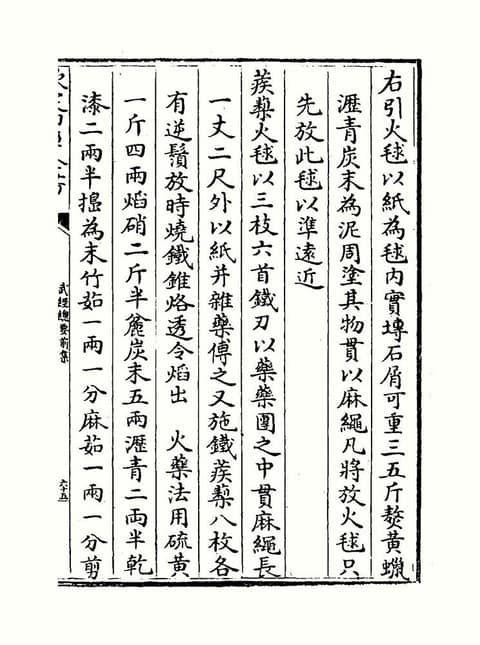 右引火毬以紙為毬内實塼石屑可重三五斤熬黄蠟
瀝青炭末為泥周塗其物貫以麻繩凡將放火毬只
先放此毬以準遠近
蒺藜火毬以三枝六首鐵刃以藥藥團之中貫麻繩長
一丈二尺外以紙并雜藥傅之又施鐵蒺藜八枚各
有逆鬚放時燒鐵錐烙透令熖出 火藥法用硫黄
一斤四兩熖硝二斤半麄炭末五兩瀝青二兩半乾
漆二兩半搗為末竹茹一兩一分麻茹一兩一分剪
武經總要前集
六十五